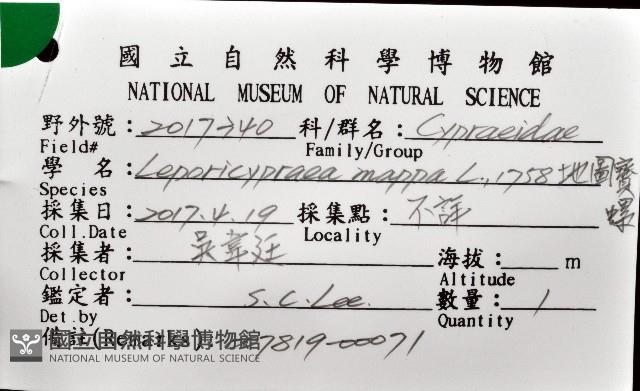 國立自然科學博物館
NATIONAL MUSEUM OF NATURAL SCIENCE
野外號：2017-740 科/群名：Cypraeidae
Field# Family/Group
學名：Leporicypraea mappa L., 1758 地圖寶螺
Species
採集日：2017.4.19 採集點：不詳
Coll.Date Locality
採集者：吳韋廷 海拔： m
Collector Altitude
鑑定者：S.C.Lee. 數量：1
Det.by Quantity
備註(Remarks) 7819-00071
國立自然科學博物館
NATIONAL MUSEUM OF NATURAL SCIENCE